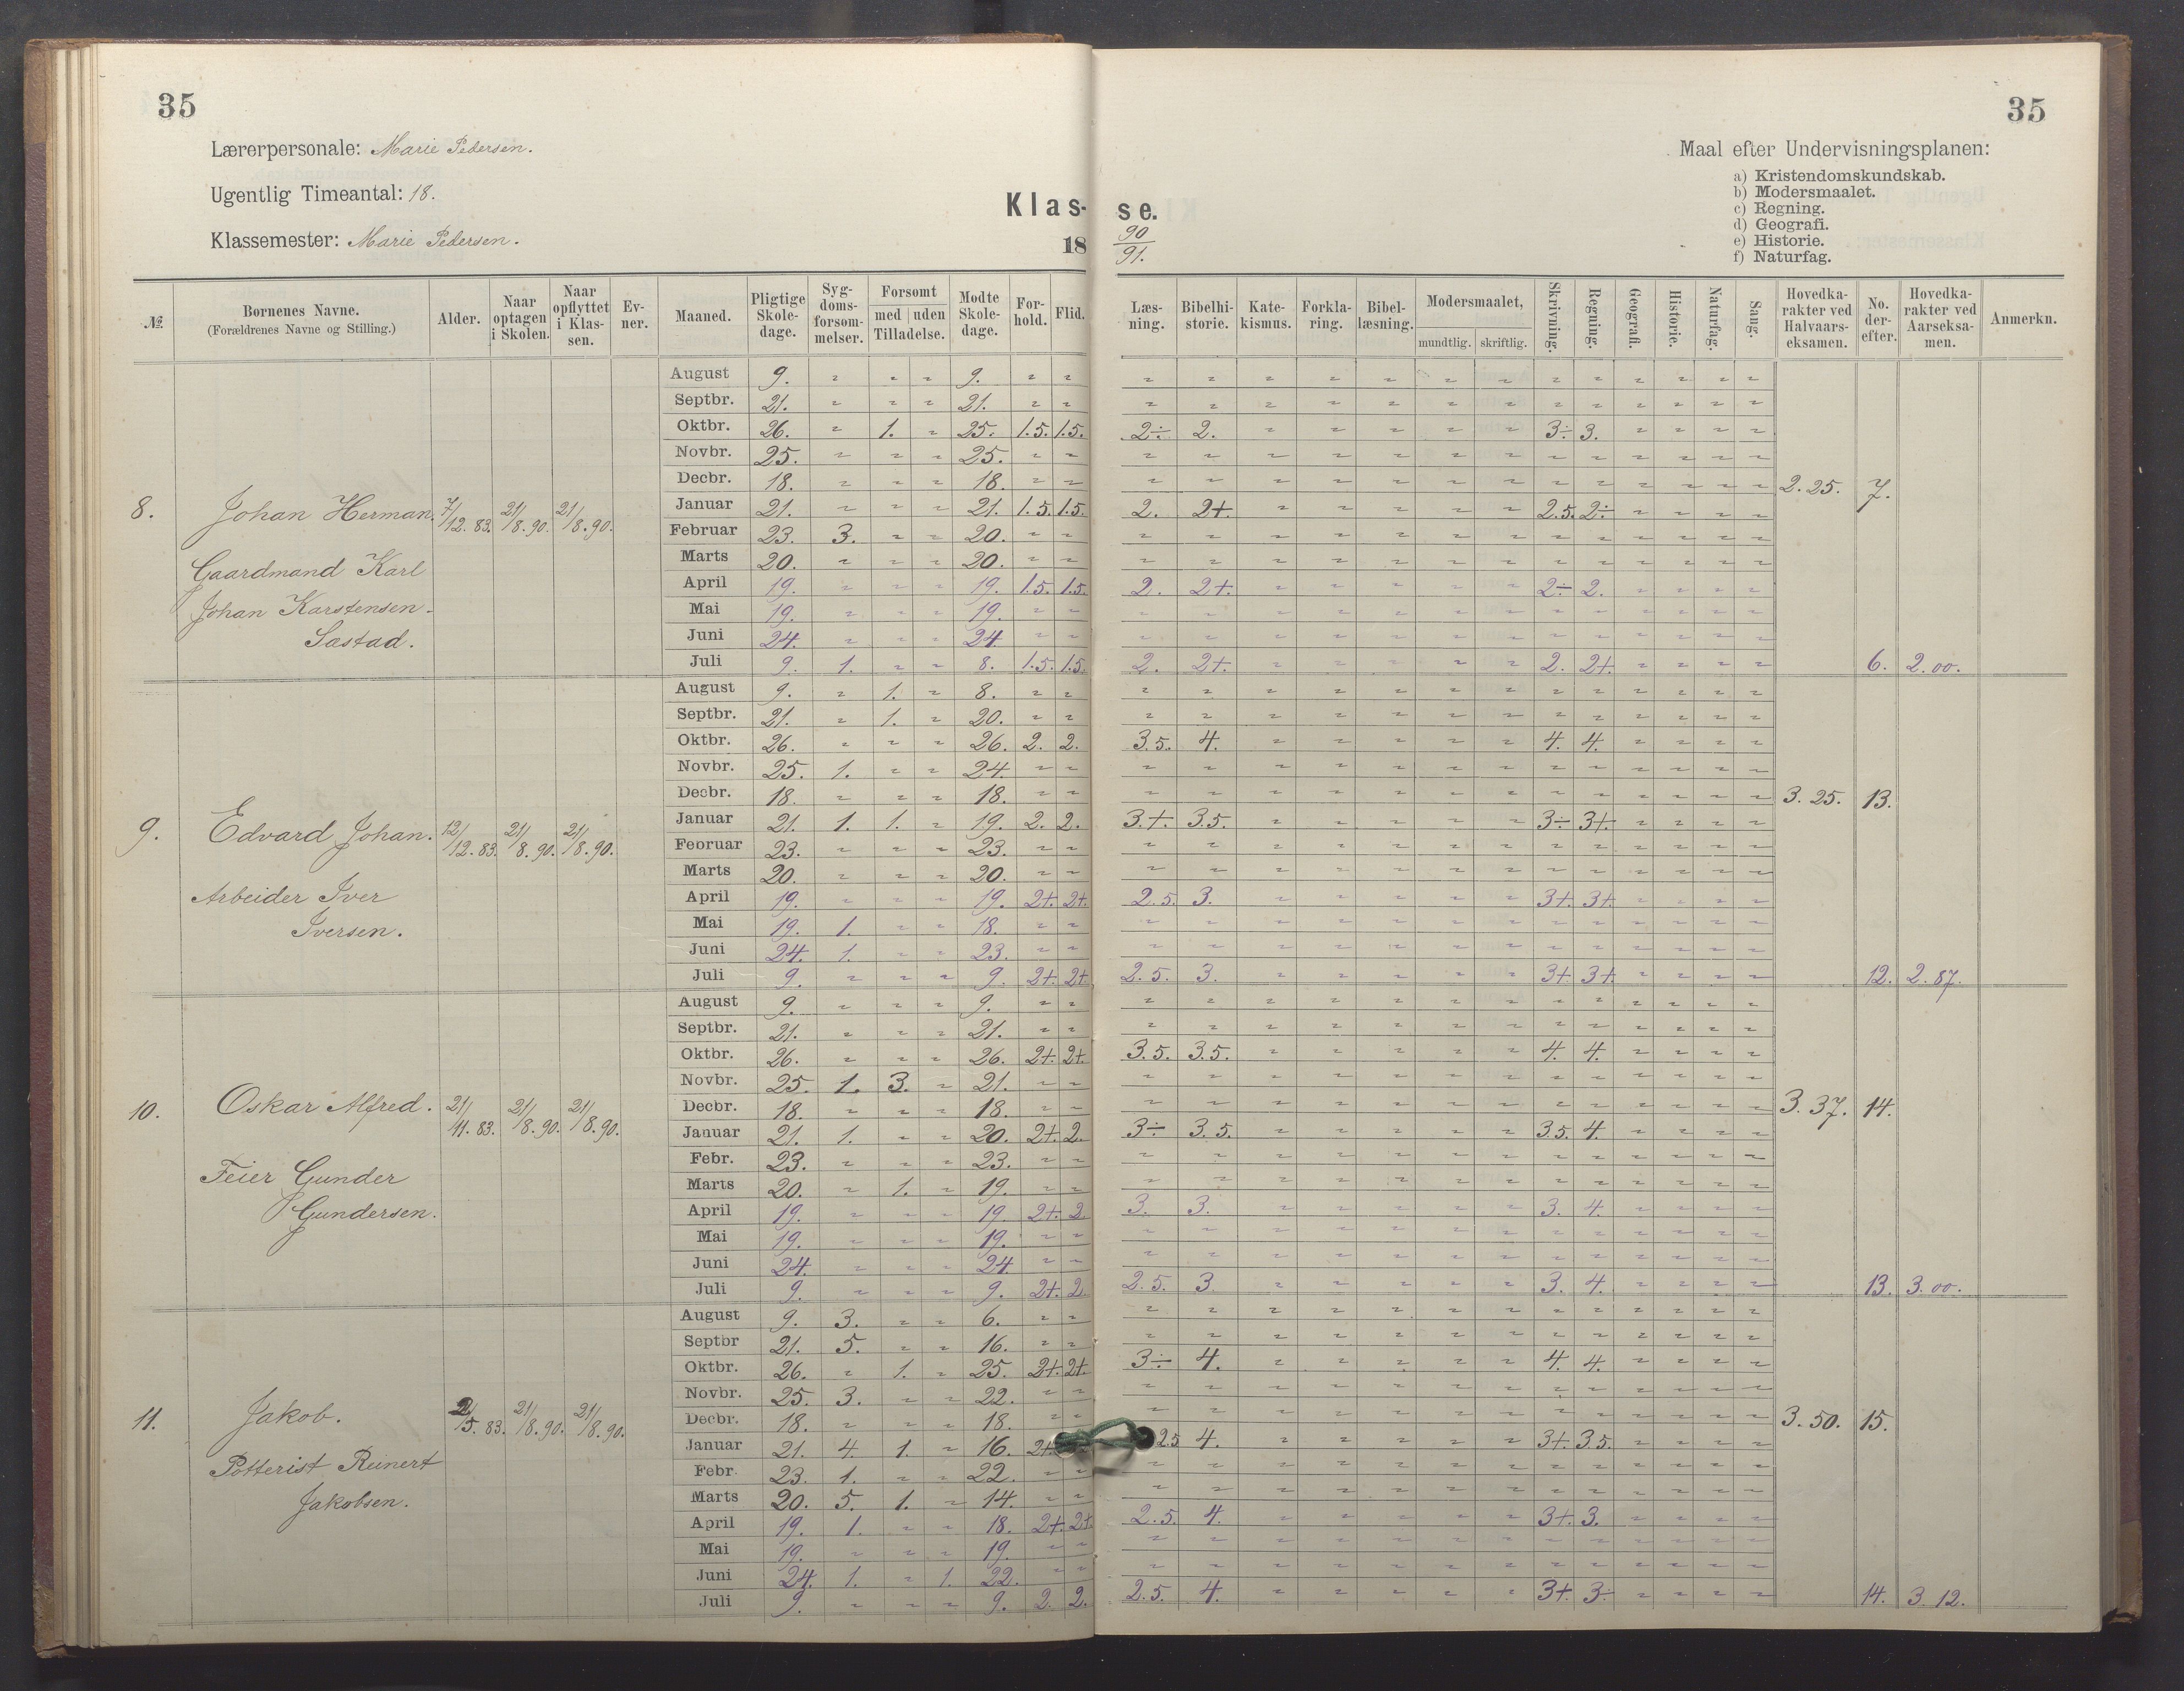 35
35
Lærerpersonale: Marie Pedersen.
Ugentlig Timeantal: 18.
Klassemester: Marie Pedersen.
Klas-
se.
18
90
91.
Maal efter Undervisningsplanen:
a) Kristendomskundskab.
b) Modersmaalet.
c) Regning.
d) Geografi.
e) Historie.
f) Naturfag.
№ Børnenes Navne. (Forældrenes Navne og Stilling.) Alder. Naar optagen i Skolen. Naar opflyttet i Klassen. Evner. Maaned. Pligtige Skoledage. Sygdomsforsømmelser. Forsømt med uden Tilladelse. Mødte Skoledage. Forhold. Flid. Læsning. Bibelhistorie. Katekismus. Forklaring. Bibellæsning. Modersmaalet, mundtlig. skriftlig. Skrivning. Regning. Geografi. Historie. Naturfag. Sang. Hovedkarakter ved Halvaarseksamen. No. derefter. Hovedkarakter ved Aarseksamen. Anmerkn.
8. Johan Herman. 7/12. 83. 21/8. 90. 21/8. 90.
Gaardmand Karl
Johan Karstensen
Sastad.
August 9. " " " 9. " "
Septbr. 21. " " " 21. " "
Oktbr. 26. " 1. " 25. 1.5. 1.5. 2÷ 2. 3÷ 3.
Novbr. 25. " " " 25. " "
Decbr. 18. " " " 18. " "
2.25. 7.
Januar 21. " " " 21. 1.5. 1.5. 2. 2+. 2.5. 2÷
Februar 23. 3. " " 20. " "
Marts 20. " " " 20. " "
April 19. " " " 19. 1.5. 1.5. 2. 2+. 2÷ 2.
Mai 19. " " " 19. " "
Juni 24. " " " 24. " "
Juli 9. 1. " " 8. 1.5. 1.5. 2. 2+. 2. 2+. 6. 2.00.
9. Edvard Johan. 12/12. 83. 21/8. 90. 21/8. 90.
Arbeider Iver
Iversen.
August 9. " 1. " 8. " "
Septbr. 21. " 1. " 20. " "
Oktbr. 26. " " " 26. 2. 2. 3.5. 4. 4. 4.
Novbr. 25. 1. " " 24. " "
Decbr. 18. " " " 18. " "
3.25. 13.
Januar 21. 1. 1. " 19. 2. 2. 3.+. 3.5. 3÷ 3+.
Februar 23. " " " 23. " "
Marts 20. " " " 20. " "
April 19. " " " 19. 2+. 2+. 2.5. 3. 3+. 3+.
Mai 19. 1. " " 18. " "
Juni 24. 1. " " 23. " "
Juli 9. " " " 9. 2+. 2+. 2.5. 3. 3+. 3+. 12. 2.87.
10. Oskar Alfred. 21/11. 83. 21/8. 90. 21/8. 90.
Feier Gunder
Gundersen.
August 9. " " " 9. " "
Septbr. 21. " " " 21. " "
Oktbr. 26. " " " 26. 2+. 2+. 3.5. 3.5. 4. 4.
Novbr. 25. 1. 3. " 21. " "
Decbr. 18. " " " 18. " "
3.37. 14.
Januar 21. 1. " " 20. 2+. 2. 3÷ 3.5. 3.5. 4.
Febr. 23. " " " 23. " "
Marts 20. " 1. " 19. " "
April 19. " " " 19. 2+. 2. 3. 3. 3. 4.
Mai 19. " " " 19. " "
Juni 24. " " " 24. " "
Juli 9. " " " 9. 2+. 2. 2.5. 3. 3. 4. 13. 3.00.
11. Jakob. 83. 21/8. 90. 21/8. 90.
Potterist Reinert
Jakobsen.
August 9. 3. " " 6. " "
Septbr 21. 5. " " 16. " "
Oktbr. 26. " 1. " 25. 2+. 2+. 3÷ 4. 4. 4.
Novbr. 25. 3. " " 22. " "
Decbr. 18. " " " 18. " "
3.50. 15.
Januar 21. 4. 1. " 16. 2+. 2.5 4. 3+. 3.5.
Febr. 23. 1. " " 22. " "
Marts 20. 5. 1. " 14. " "
April 19. 1. " " 18. 2+. 2+. 2.5. 4. 3+. 3.
Mai 19. " " " 19. " "
Juni 24. 1. " 1. 22. " "
Juli 9. " " " 9. 2. 2. 2.5. 4. 3+. 3÷ 14. 3.12.